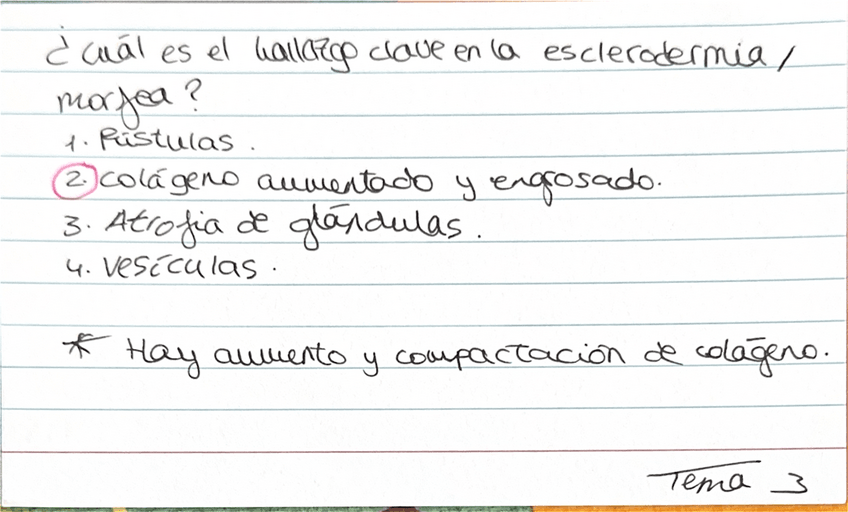 ¿Cuál es el hallazgo clave en la esclerodermia /
morfea?
1. Pústulas.
2. colágeno aumentado y engrosado.
3. Atrofia de glándulas.
4. vesículas.
* Hay aumento y compactación de colágeno.
Tema 3